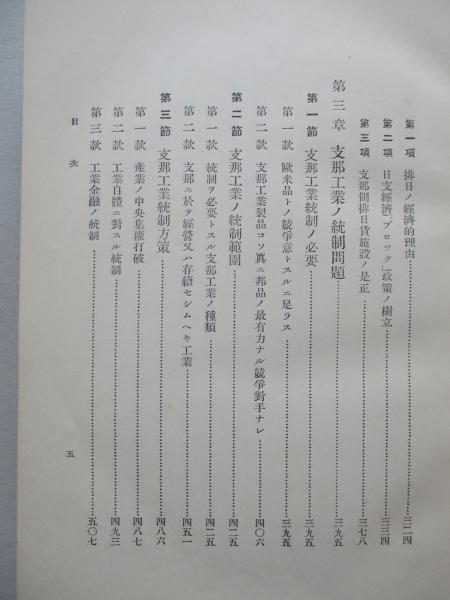 第一項 排日ノ經濟的理由……三二四
第二項 日支經濟「ブロック」政策ノ樹立……三三四
第三項 支那側排日貨施設ノ是正……三七八
第三章 支那工業ノ統制問題……三九五
第一節 支那工業統制ノ必要……三九五
第一款 歐米品トノ競爭意トスルニ足ラス……三九五
第二款 支那工業製品コソ眞ニ邦品ノ最有力ナル競爭對手ナレ……四〇六
第二節 支那工業ノ統制範圍……四二五
第一款 統制ヲ必要トスル支那工業ノ種類……四二五
第二款 支那ニ於テ經營又ハ存續セシムヘキ工業……四五一
第三節 支那工業統制方策……四八六
第一款 產業ノ中央集權打破……四八七
第二款 工業自體ニ對スル統制……四九三
第三款 工業金融ノ統制……五〇七
目次
五